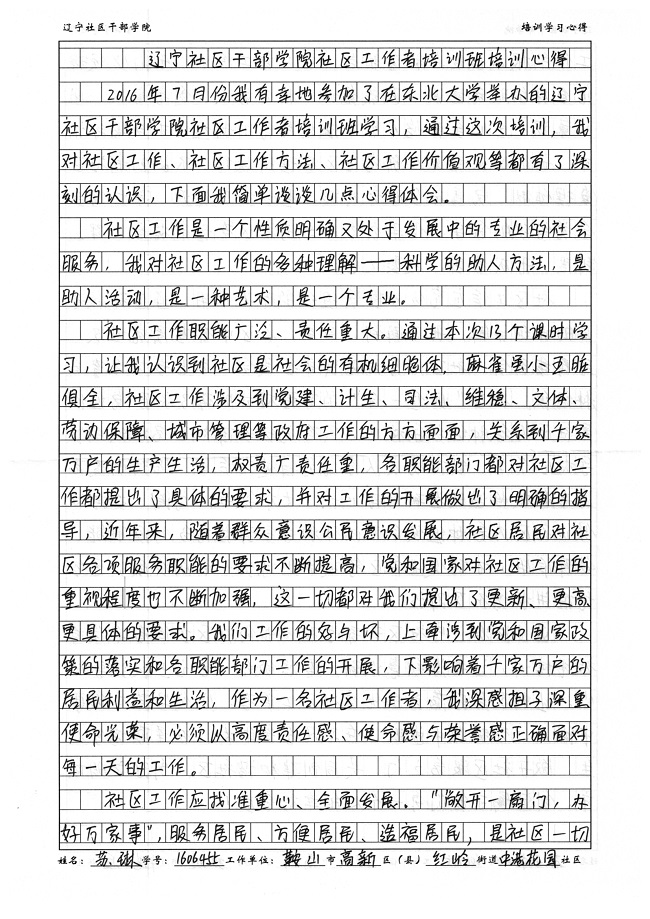 辽宁社区干部学院 培训学习心得
辽宁社区干部学院社区工作者培训班培训心得
2016年7月份我有幸地参加了在东北大学举办的辽宁
社区干部学院社区工作者培训班学习，通过这次培训，我
对社区工作、社区工作方法、社区工作价值观等都有了深
刻的认识，下面我简单谈谈几点心得体会。
社区工作是一个性质明确又处于发展中的专业的社会
服务，我对社区工作的多种理解——科学的助人方法，是
助人活动，是一种艺术，是一个专业。
社区工作职能广泛、责任重大。通过本次13个课时学
习，让我认识到社区是社会的有机细胞体，麻雀虽小五脏
俱全，社区工作涉及到党建、计生、司法、维稳、文体、
劳动保障、城市管理等政府工作的方方面面，关系到千家
万户的生产生活，权责广责任重，各职能部门都对社区工
作都提出了具体的要求，并对工作的开展做出了明确的指
导，近年来，随着群众意识公民意识发展，社区居民对社
区各项服务职能的要求不断提高，党和国家对社区工作的
重视程度也不断加强，这一切都对我们提出了更新、更高
更具体的要求。我们工作的好与坏，上面涉到党和国家政
策的落实和各职能部门工作的开展，下影响着千家万户的
居民利益和生活，作为一名社区工作者，我深感担子深重
使命光荣，必须以高度责任感、使命感与荣誉感正确面对
每一天的工作。
社区工作应找准重心、全面发展。"敞开一扇门，办
好万家事"，服务居民、方便居民、造福居民，是社区一切
姓名：苏琳 学号：1606455 工作单位：鞍山市高新区（县）红岭街道中港花园社区